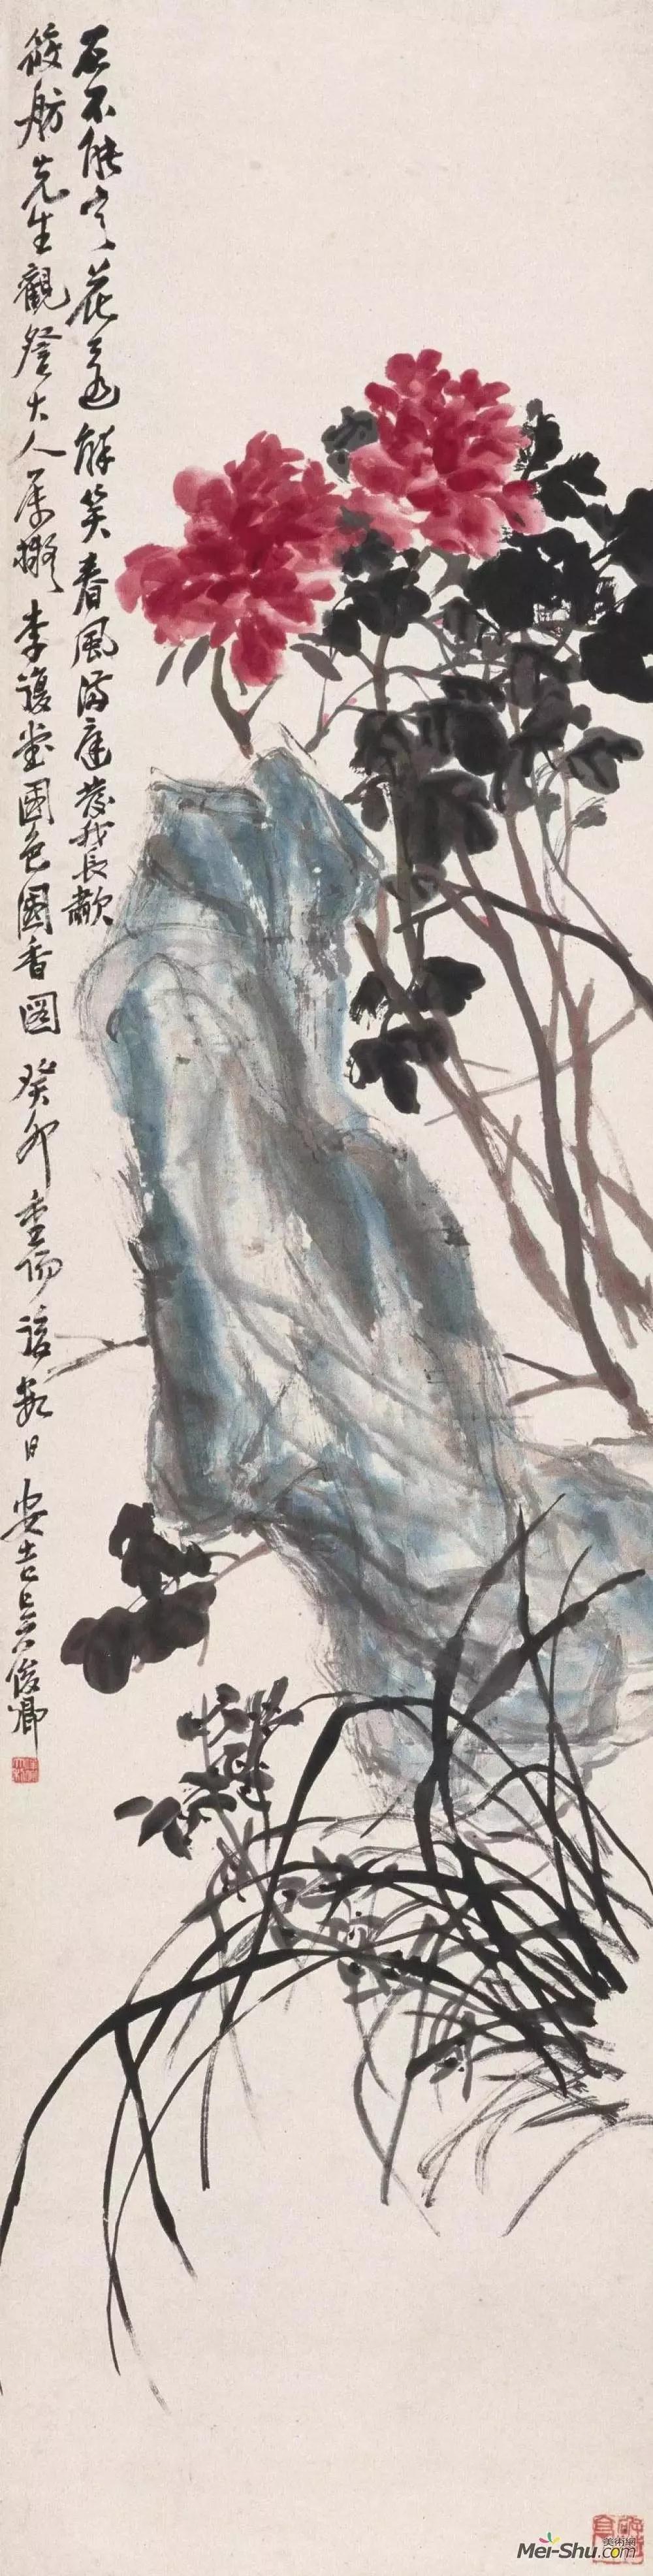 石不能言花還解笑春風滿庭發我長歗
筱舫先生觀詧大人屬擬李復堂國色國香圖癸卯重陽後數日安吉吳俊卿
美術網
Mei-Shu.com